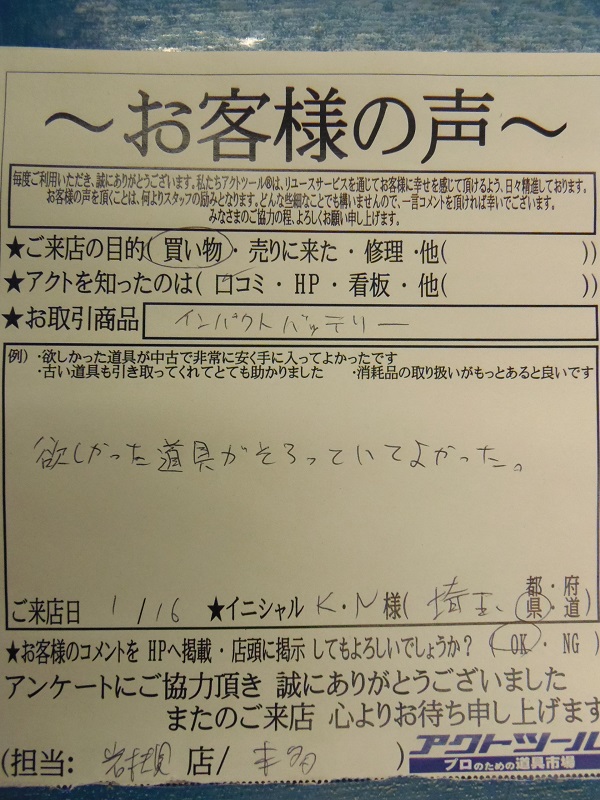 ～お客様の声～
毎度ご利用いただき、誠にありがとうございます。私たちアクトツール®は、リユースサービスを通じてお客様に幸せを感じて頂けるよう、日々精進しております。
お客様の声を頂くことは、何よりスタッフの励みとなります。どんな些細なことでも構いませんので、一言コメントを頂ければ幸いでございます。
みなさまのご協力の程、よろしくお願い申し上げます。
★ご来店の目的(買い物・売りに来た・修理・他( ))
★アクトを知ったのは(口コミ・HP・看板・他( ))
★お取引商品 インパクトバッテリー
例）・欲しかった道具が中古で非常に安く手に入ってよかったです
・古い道具も引き取ってくれてとても助かりました ・消耗品の取り扱いがもっとあると良いです
欲しかった道具がそろっていてよかった。
ご来店日 1/16 ★イニシャル K・N様( 埼玉 都・府・県・道)
★お客様のコメントを HPへ掲載・店頭に掲示 してもよろしいでしょうか？ (OK・NG)
アンケートにご協力頂き 誠にありがとうございました
またのご来店 心よりお待ち申し上げます
(担当: 岩槻 店/ )
アクトツール
プロのための道具市場